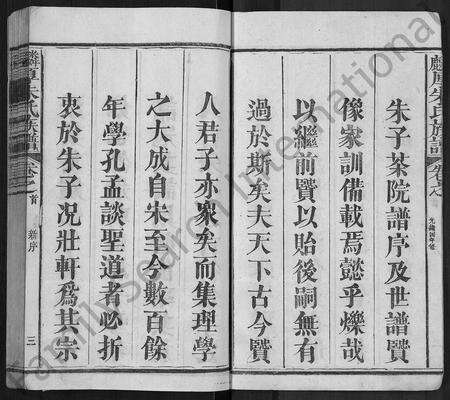 麟厚朱氏族譜
卷之首
光緒四年修
朱子茶院譜序及世譜賢
像家訓備載焉懿乎爍哉
以繼前賢以貽後嗣無有
過於斯矣夫天下古今賢
人君子亦衆矣而集理學
之大成自宋至今數百餘
年學孔孟談聖道者必折
衷於朱子况壯軒爲其宗
朱氏族譜
卷之首
新序
三
FamilySearch International